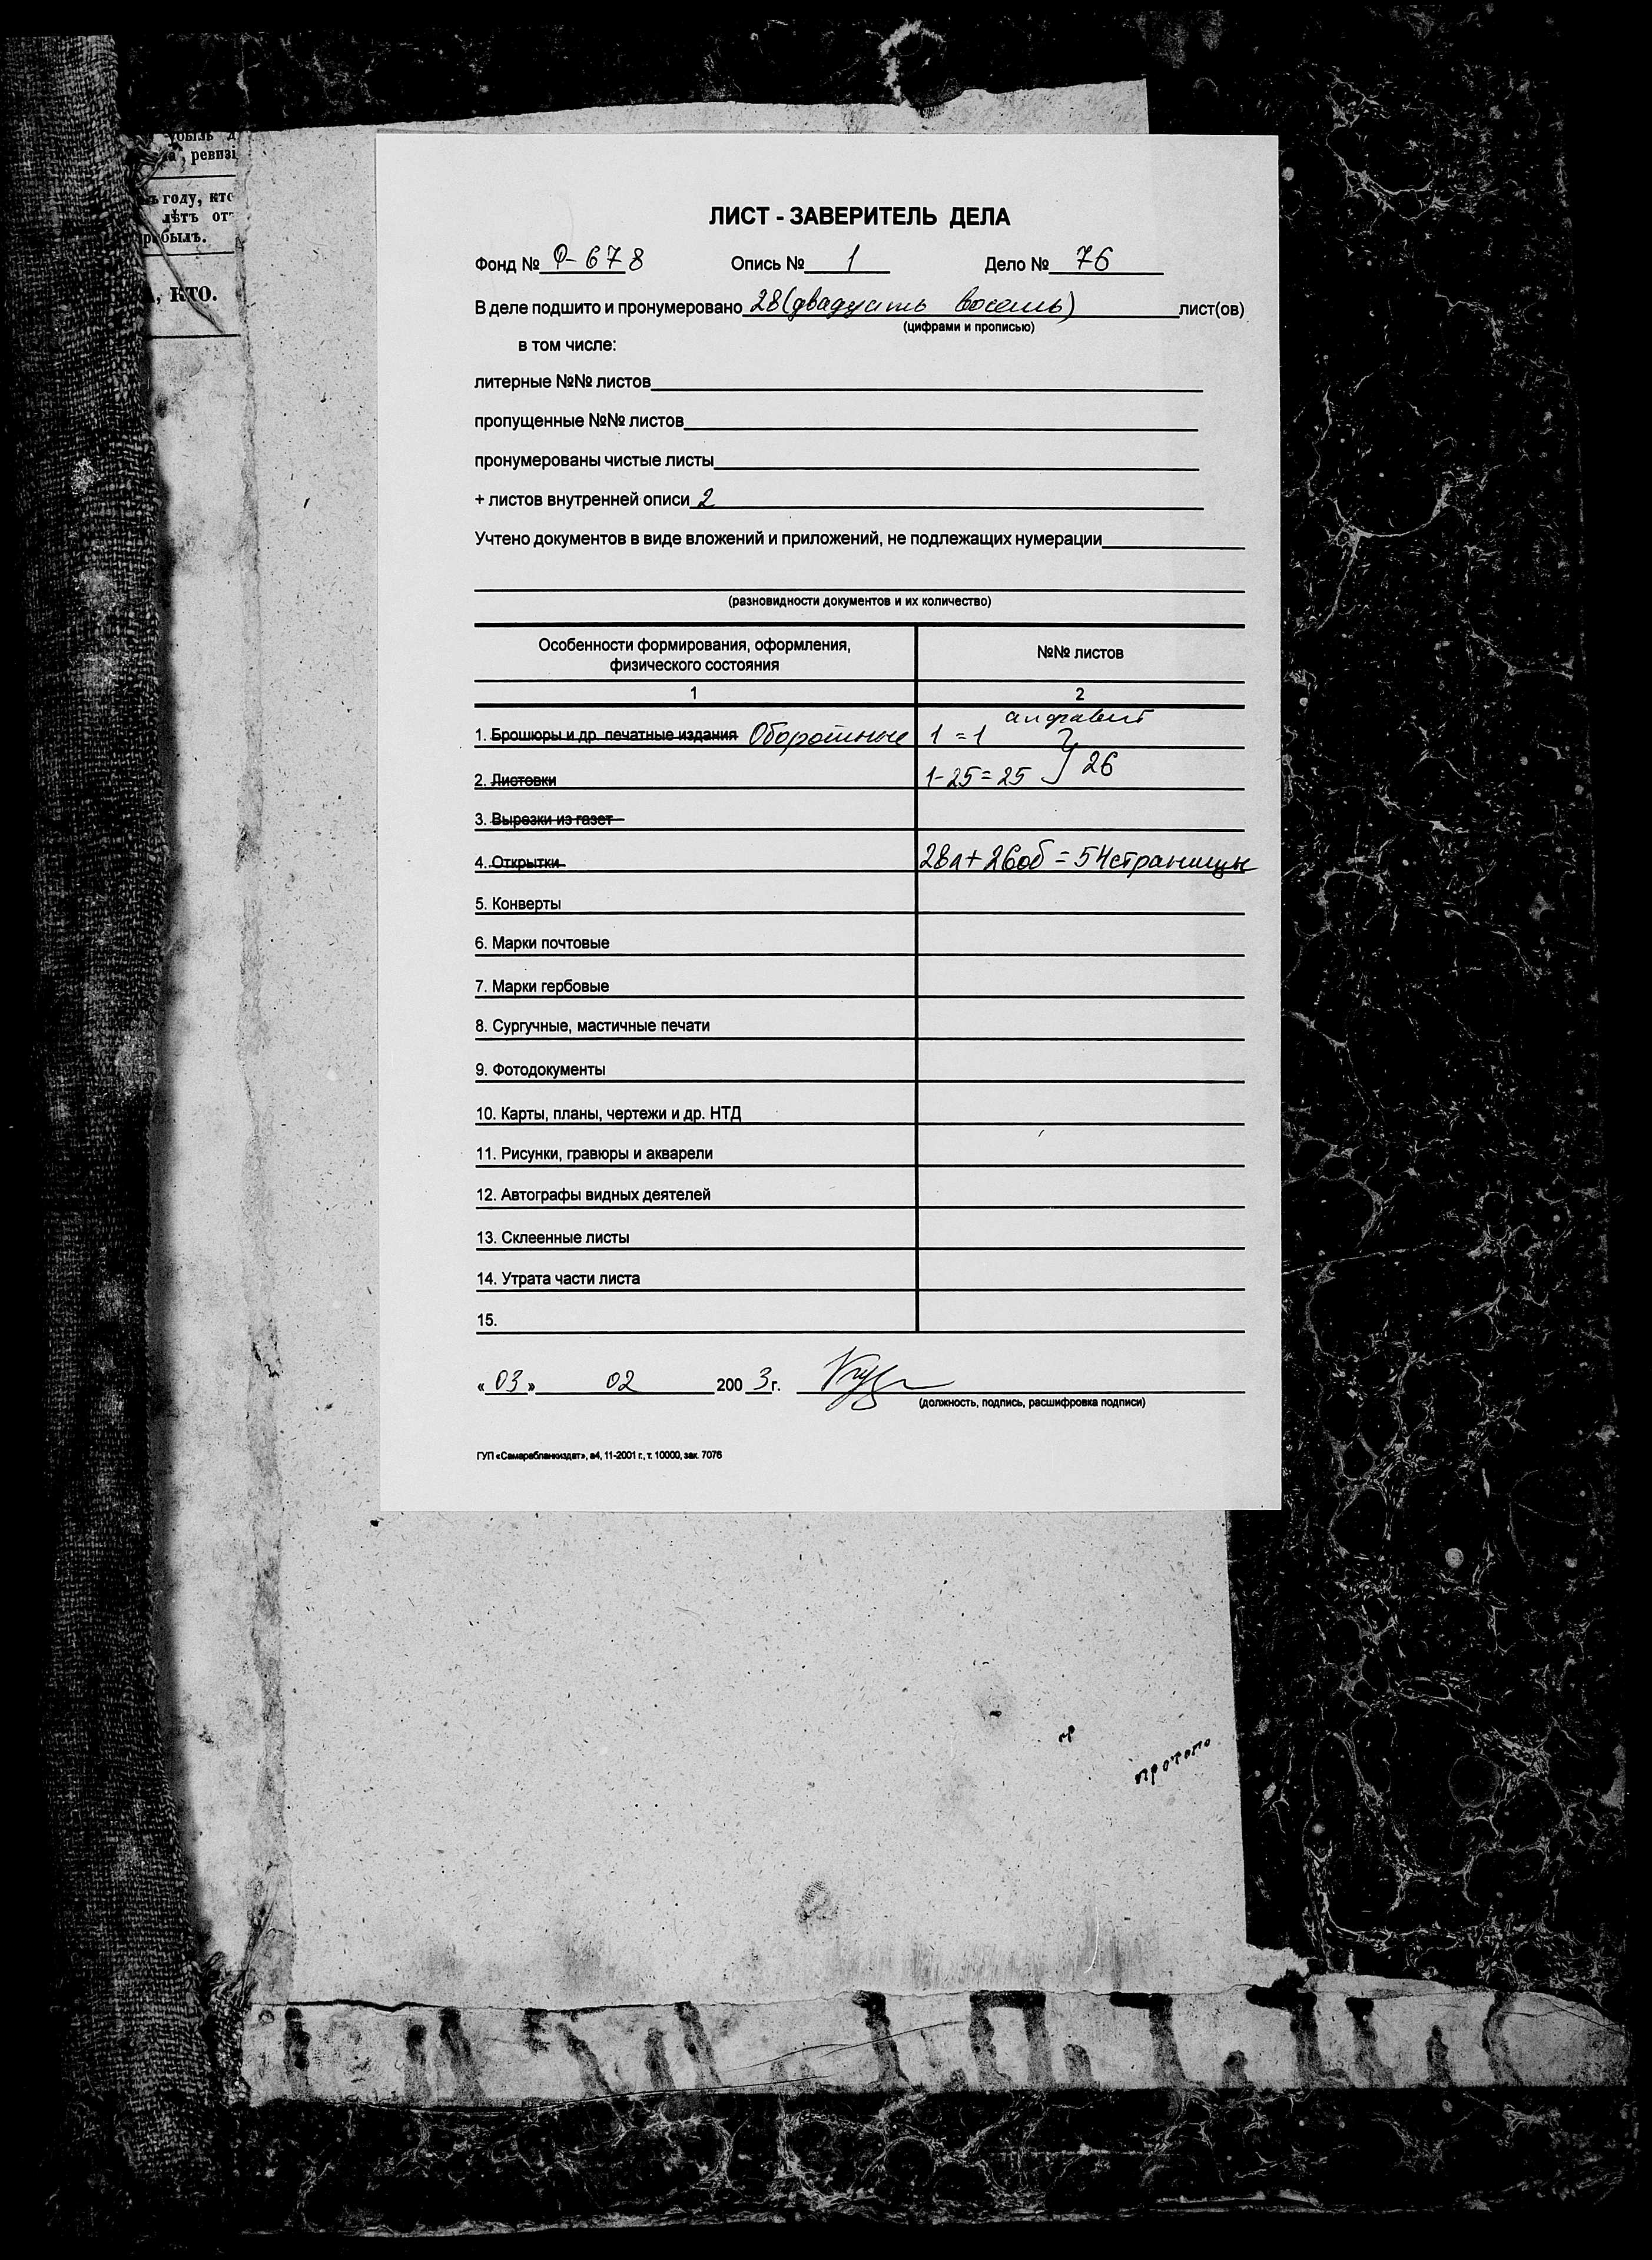 убыль
ревизі
году, кто
лѣтъ от
прибылъ.
А, КТО.
ЛИСТ - ЗАВЕРИТЕЛЬ ДЕЛА
Фонд № Ф-678 Опись № 1 Дело № 76
В деле подшито и пронумеровано 28 (двадцать восемь) лист(ов)
(цифрами и прописью)
в том числе:
литерные №№ листов
пропущенные №№ листов
пронумерованы чистые листы
+ листов внутренней описи 2
Учтено документов в виде вложений и приложений, не подлежащих нумерации
(разновидности документов и их количество)
Особенности формирования, оформления,
физического состояния
№№ листов
1 2
алфавит
1. Брошюры и др. печатные издания Оборотные 1 = 1
2. Листовки 1-25 = 25 } 26
3. Вырезки из газет
4. Открытки 28л + 26об = 54 страницы
5. Конверты
6. Марки почтовые
7. Марки гербовые
8. Сургучные, мастичные печати
9. Фотодокументы
10. Карты, планы, чертежи и др. НТД
11. Рисунки, гравюры и акварели
12. Автографы видных деятелей
13. Склеенные листы
14. Утрата части листа
15.
«03» 02 2003 г.
(должность, подпись, расшифровка подписи)
ГУП «Самарабланкиздат», а4, 11-2001 г., т. 10000, зак. 7076
пр
протопо